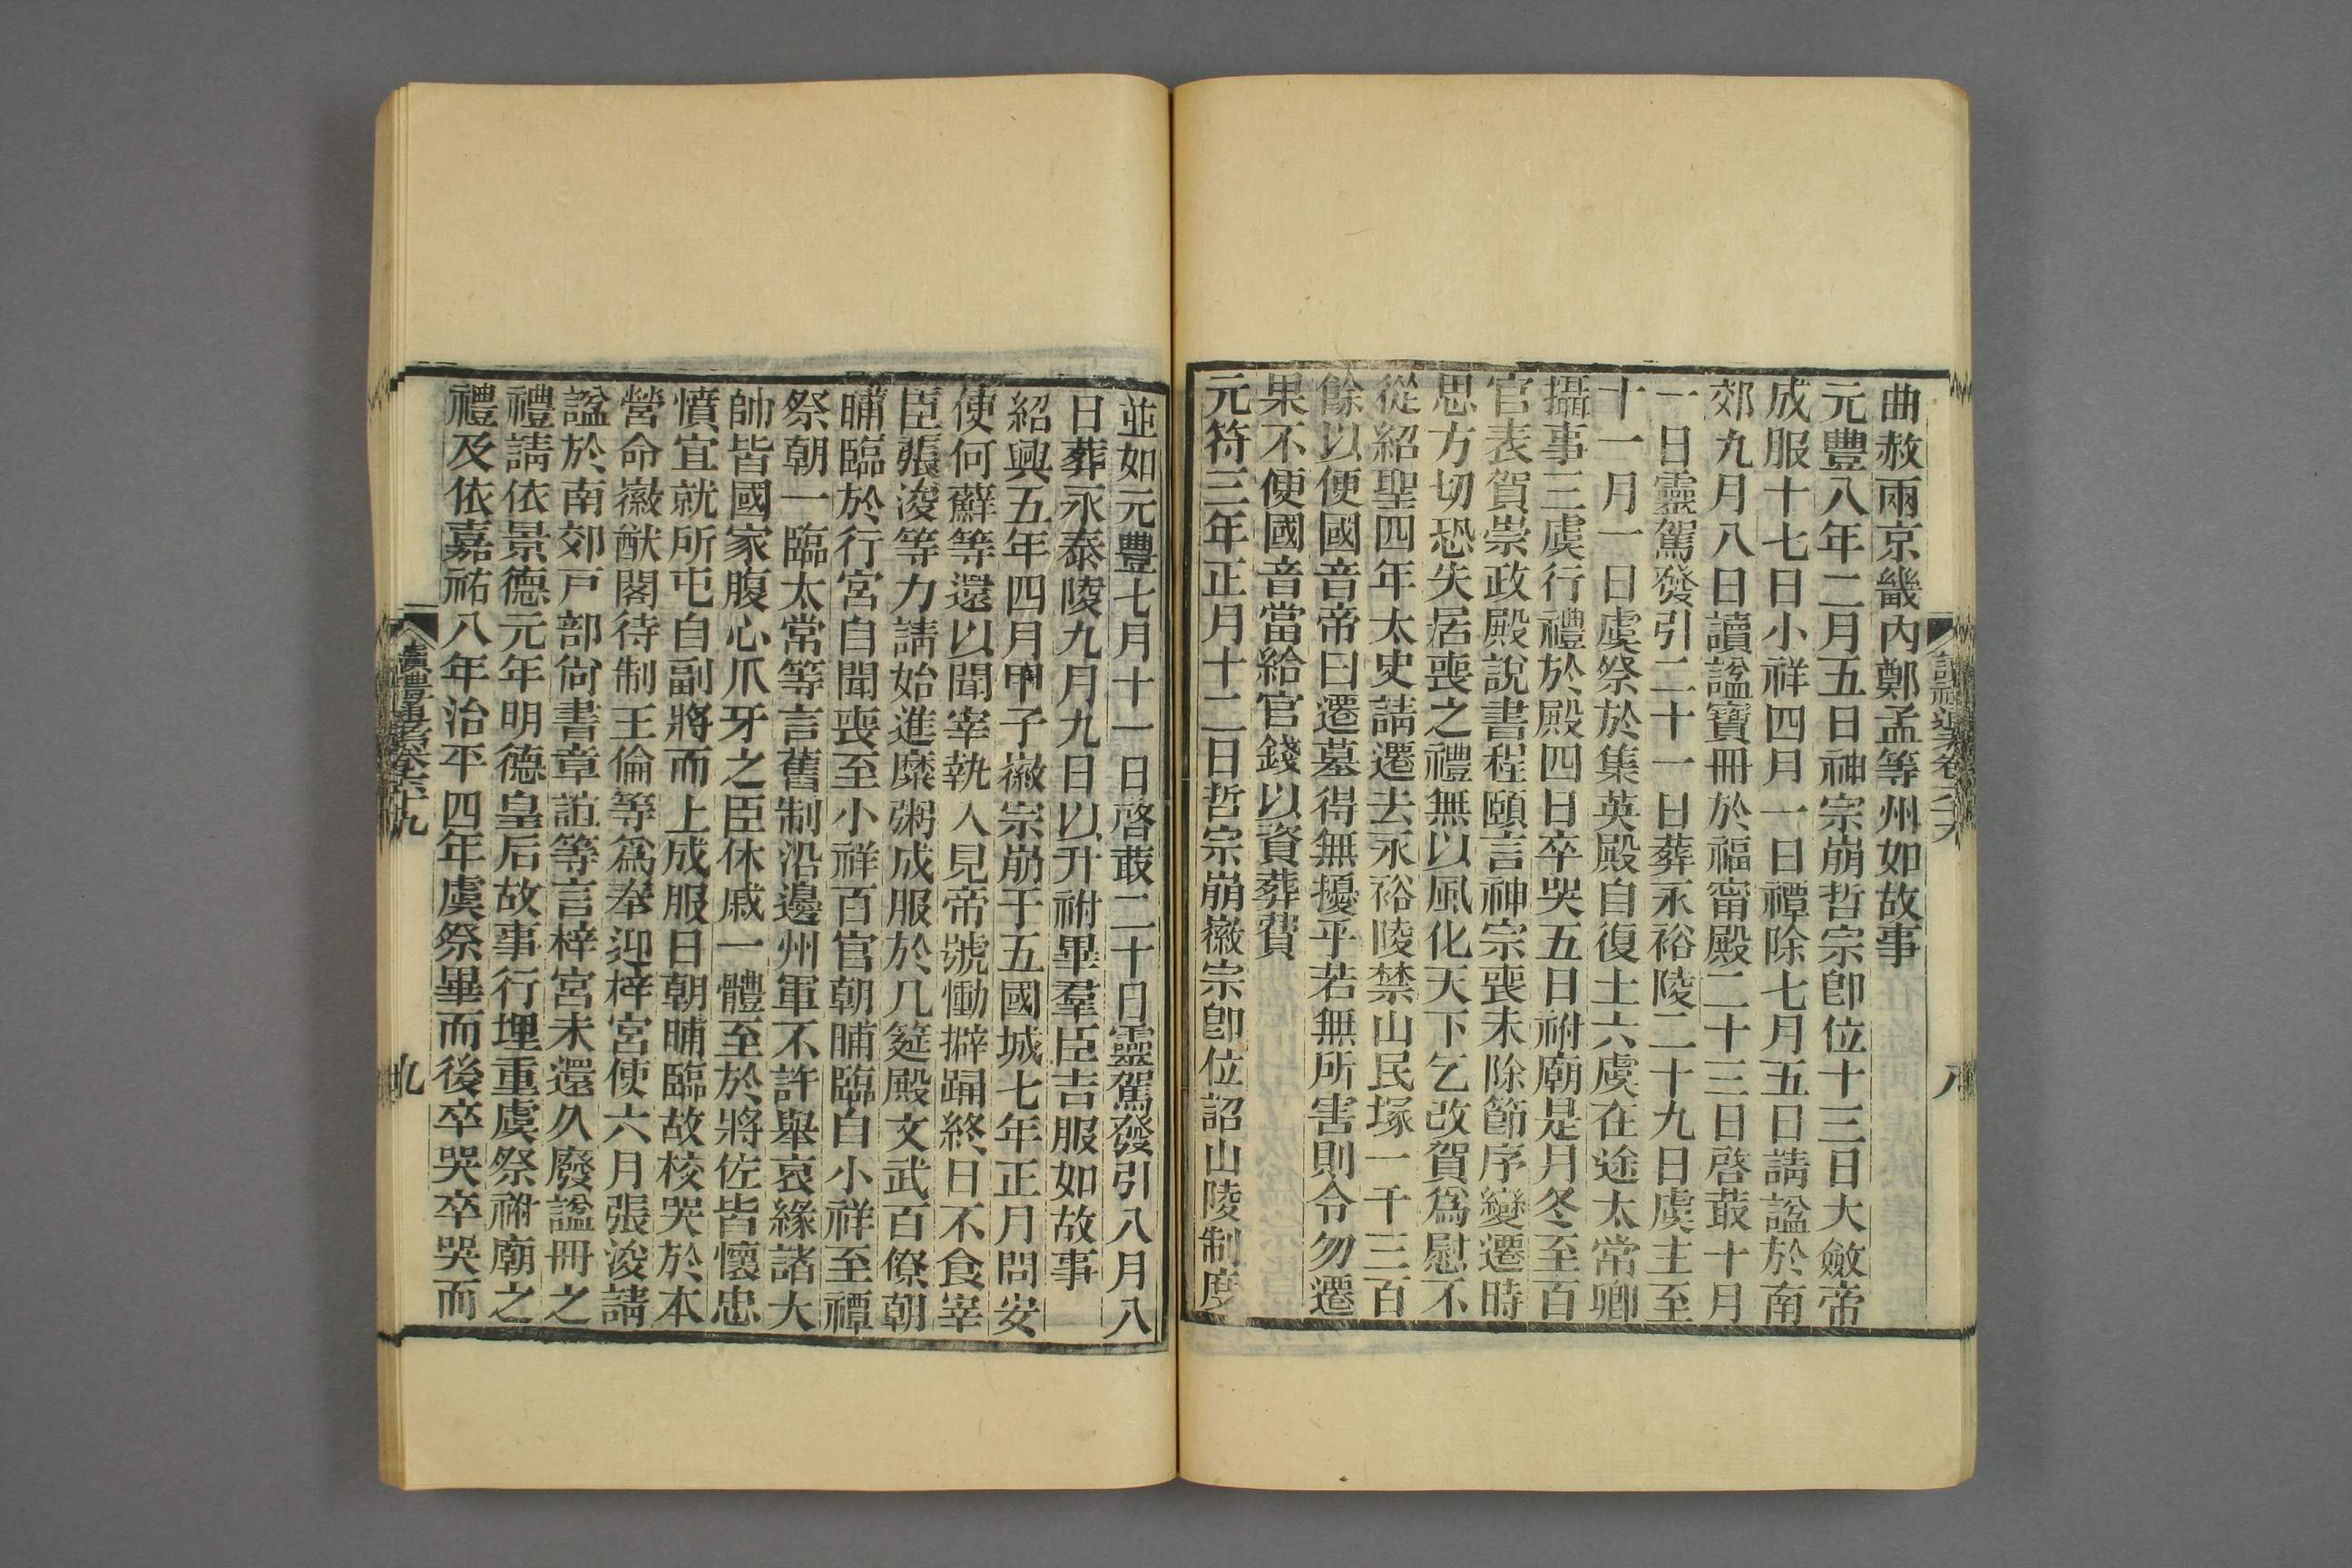 曲赦兩京畿內鄭孟等州如故事
元豐八年二月五日神宗崩哲宗卽位十三日大斂帝
成服十七日小祥四月一日禫除七月五日請諡於南
郊九月八日讀諡寶冊於福甯殿二十三日啓菆十月
一日靈駕發引二十一日葬永裕陵二十九日虞主至
十一月一日虞祭於集英殿自復土六虞在途太常卿
攝事三虞行禮於殿四日卒哭五日祔廟是月冬至百
官表賀崇政殿說書程頤言神宗喪未除節序變遷時
思方切恐失居喪之禮無以風化天下乞改賀爲慰不
從紹聖四年太史請遷去永裕陵禁山民塚一千三百
餘以便國音帝曰遷墓得無擾乎若無所害則令勿遷
果不便國音當給官錢以資葬費
元符三年正月十二日哲宗崩徽宗卽位詔山陵制度
八
並如元豐七月十一日啓菆二十日靈駕發引八月八
日葬永泰陵九月九日以升祔畢羣臣吉服如故事
紹興五年四月甲子徽宗崩于五國城七年正月問安
使何蘚等還以聞宰執入見帝號慟擗踊終日不食宰
臣張浚等力請始進糜粥成服於几筵殿文武百僚朝
晡臨於行宮自聞喪至小祥百官朝晡臨自小祥至禫
祭朝一臨太常等言舊制沿邊州軍不許舉哀緣諸大
帥皆國家腹心爪牙之臣休戚一體至於將佐皆懷忠
憤宜就所屯自副將而上成服日朝晡臨故校哭於本
營命徽猷閣待制王倫等爲奉迎梓宮使六月張浚請
諡於南郊戸部尙書章誼等言梓宮未還久廢諡冊之
禮請依景德元年明德皇后故事行埋重虞祭祔廟之
禮及依嘉祐八年治平四年虞祭畢而後卒哭卒哭而
讀禮通考卷六十九
九